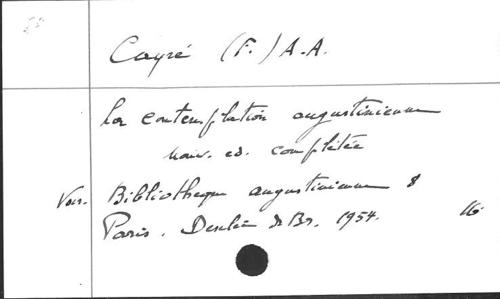 Cayré (F.) A.A.
La contemplation augustinienne
nouv. ed. complétée
Voir. Bibliothèque augustinienne 8
Paris. Desclée de Br. 1954. 16